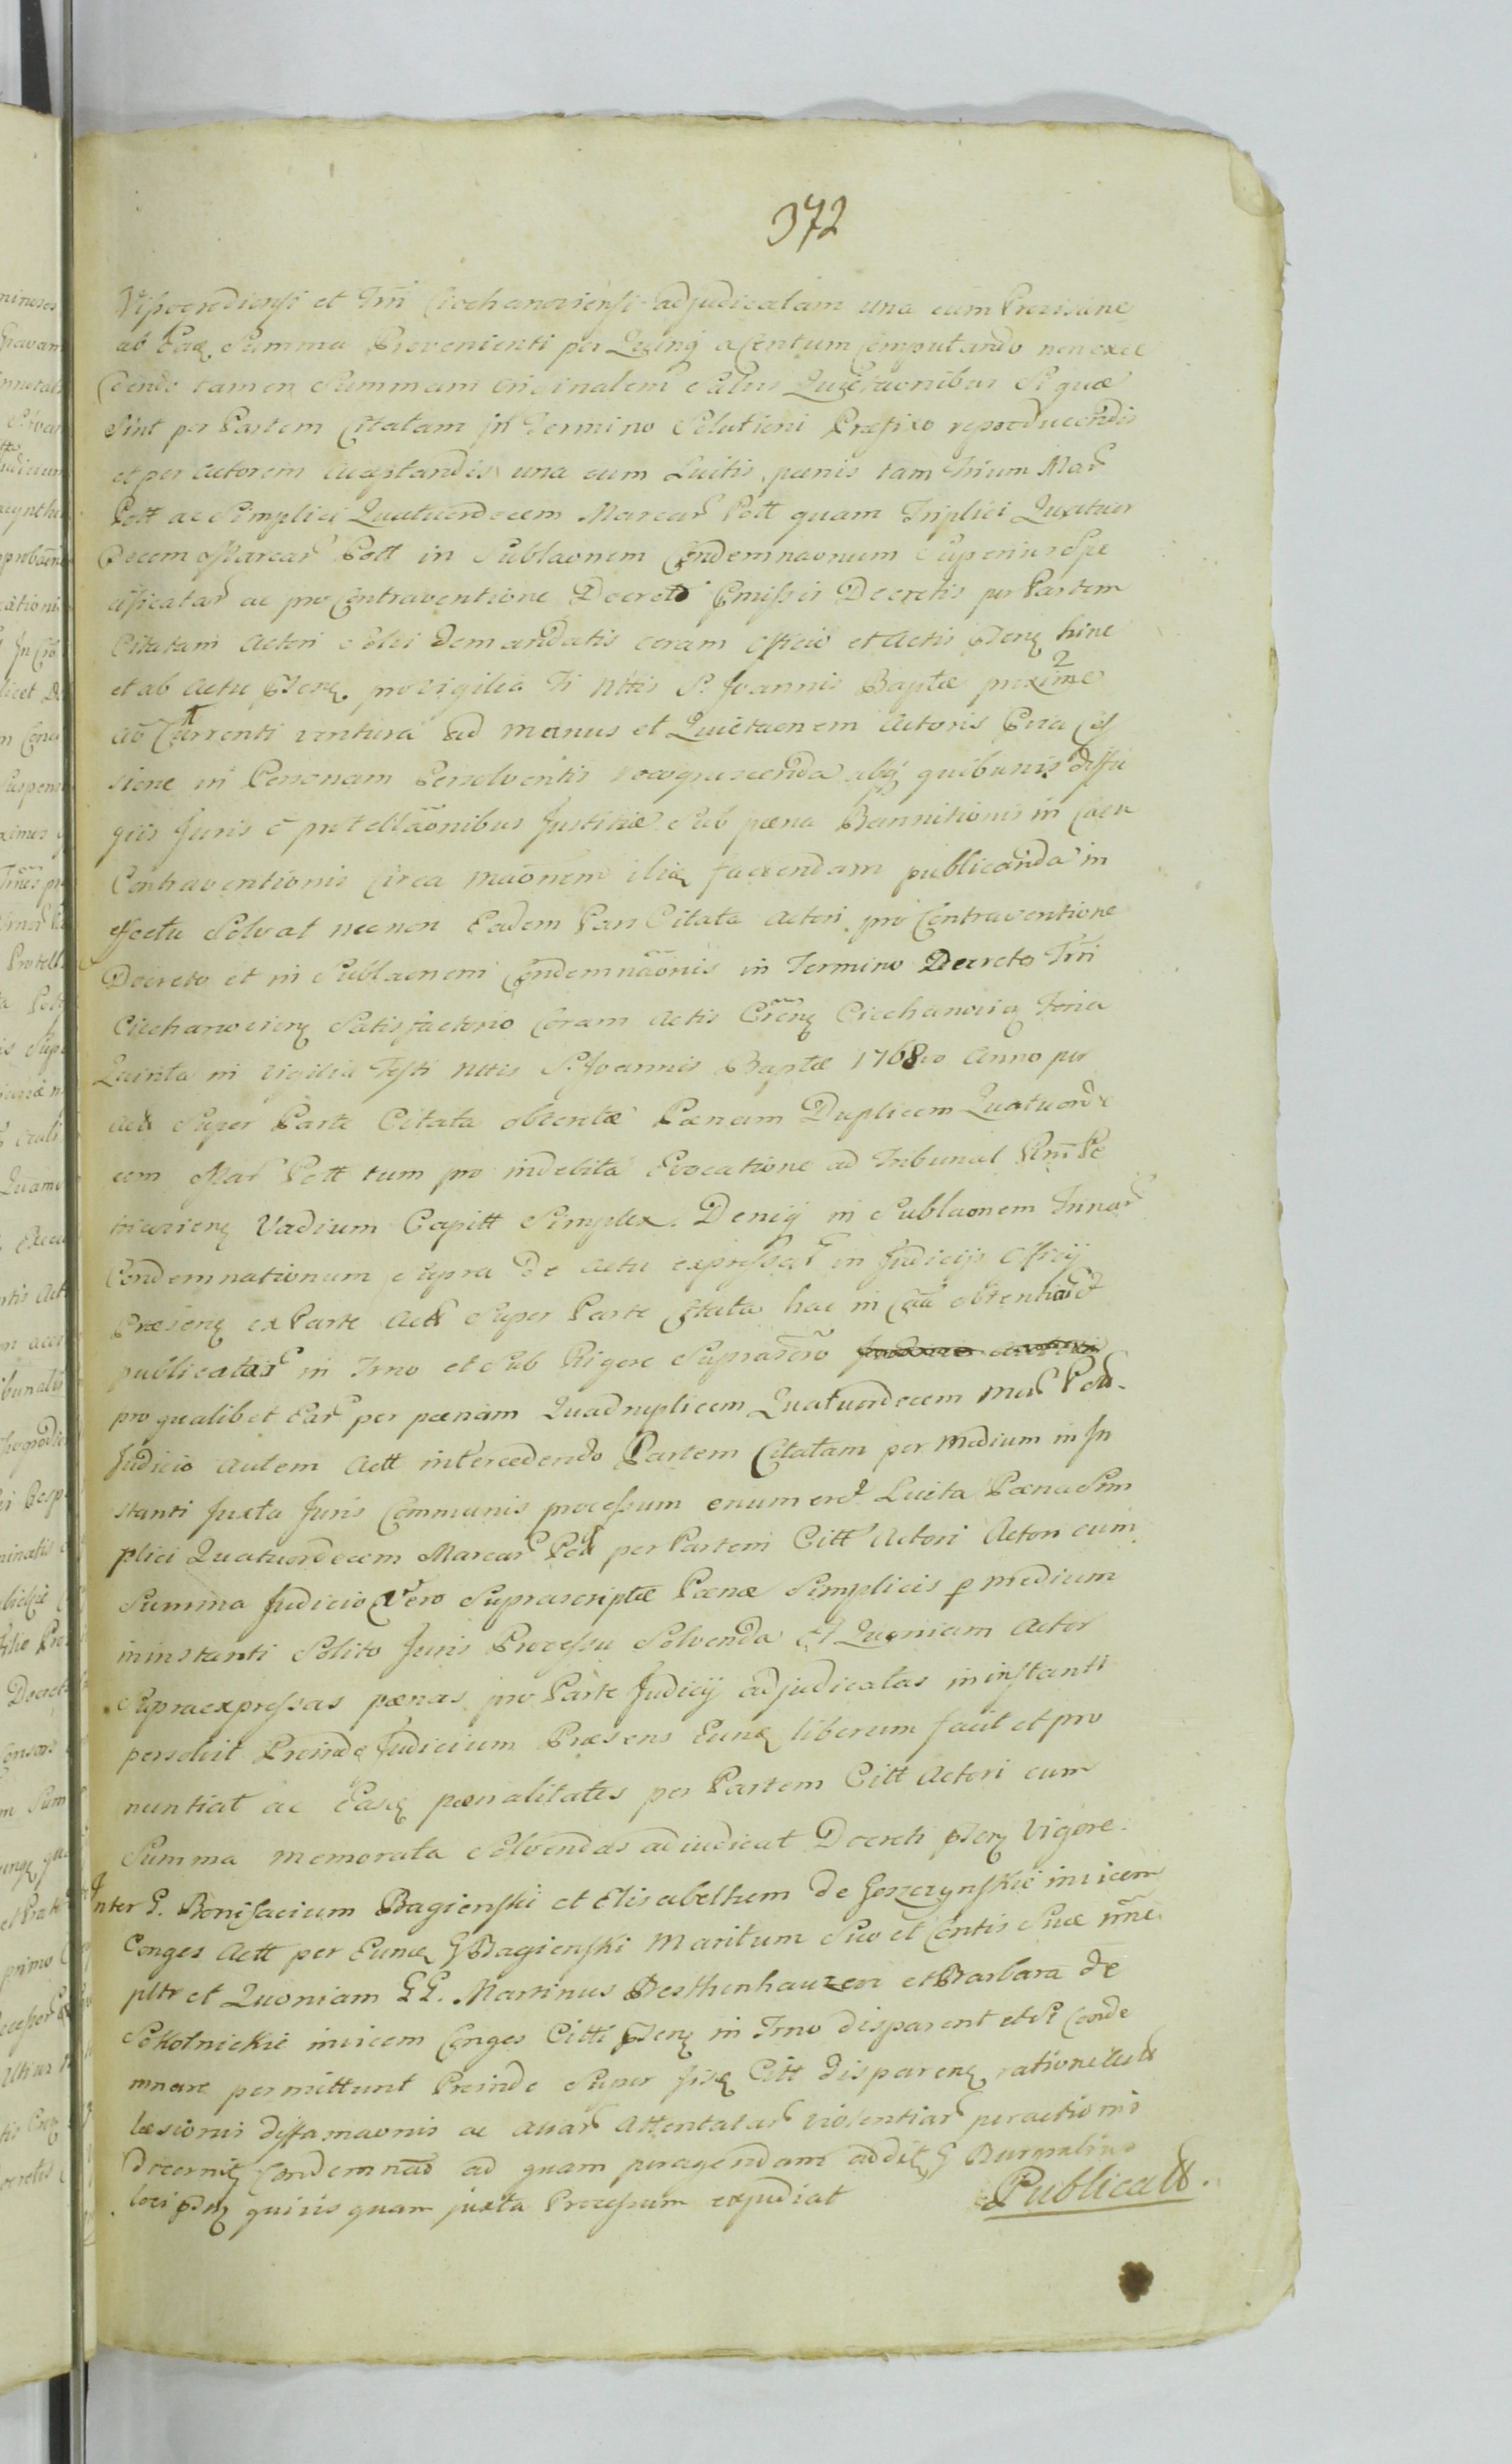 372
et Trii Ciechanoviensi adjudicatam una cum Provisione
ab Eadq Summa Provenienti per Quinq a Centum Computando non exce
dendo tamen Summam originalem Salvis Quietaonibus Si quæ
Sint per Partem Citatam in Termino Solutioni Præfixo reproducendis
et per Actorem acceptandis una cum Luitis pænis tam Trium Mar
Poll ac Simplici Quatuordecem Marcar Poll quam Triplici Quatuor
Decem Marcar Poll in Sublaonem Condemnaonum Superius Spe
cificatar ac pro Contraventione Decreto Emissis Decretis per Partem
Citatam Actori Solvi demandatis coram Officio et Actis Psenq hinc
et ab Actu Psenq pro vigilia Fi Nttis S. Joannis Baptæ proxime 2
ao Currenti ventura ad manus et Quietaonem Actoris Cum Ces
sione in Personam Persolventis recognoscenda absq quibusvis diffu
giis Juris et protellaonibus Justitiæ Sub pæna Bannitionis in Casu
Contraventionis Circa maonem iliq faciendam publicanda in
effectu Solvat necnon Eadem Pars Citata Actori pro Contraventione
Decreto et in Sublaonem Condemnaonis in Termino Decreto Trii
Ciechanoviens Satisfactorio Coram Actis Crenq Ciechanovienq Feria
Quinta in Vigilia Festi Nttis S. Joannis Baptæ 1768vo Anno per
Act Super Parte Citata obtentæ Pænam Duplicem Quatuord
cem Mar Poll tum pro indebita Evocatione ad Tribunal Rni Pe
tricovienq Vadium Capitt Simplex. Deniq in Sublaonem Trinar
Condemnationum Supra De Actu expressar in Judicijs Officij
Præsenq ex Parte Act Super Parte Citata hac in Caa obtentar et
publicatar in Trno et Sub Rigore Suprascro
pro qualibet Ear per pænam Quadruplicem Quatuordecem Mar Poll.
Judicio autem Act intercedendo Partem Citatam per medium in In
stanti Juxta Juris Communis processum enumerd Luita Pæna Sim
plici Quatuordecem Marcar Poll per Partem Citt Actori Actori cum
Summa Judicio Vero Suprascriptæ Pænæ Simplicis p medium
ininstanti Solito Juris Processu Solvenda Et Quoniam Actor
Supraexpressas pænas pro Parte Judicij adjudicatas in instanti
persolvit Proinde Judicium Præsens Eunq liberum facit et pro
nuntiat ac Easq pænalitates per Partem Citt Actori cum
Summa memorata Solvendas adiudicat Decreti Psenq Vigore.
Inter G. Bonifacium Bagienski et Elisabetham de Gorczynskie invicem
Conges Act per Eunq G Bagienski Maritum Suo et Contis Suæ nne
pltr et Quoniam GG. Martinus et Barbara de
Sokolnickie invicem Conges Citti Psenq in Trno disparent et Se Conde
mnare permittunt Proinde Super Iisq Citt disparenq ratione
læsionis diffamaonis ac aliar Attentatar violentiar peractionis
Decernit Condemnao ad quam peragendam addit G Burgrabius
loci Psenq qui iis quam juxta Processum expediat
Publicatt.